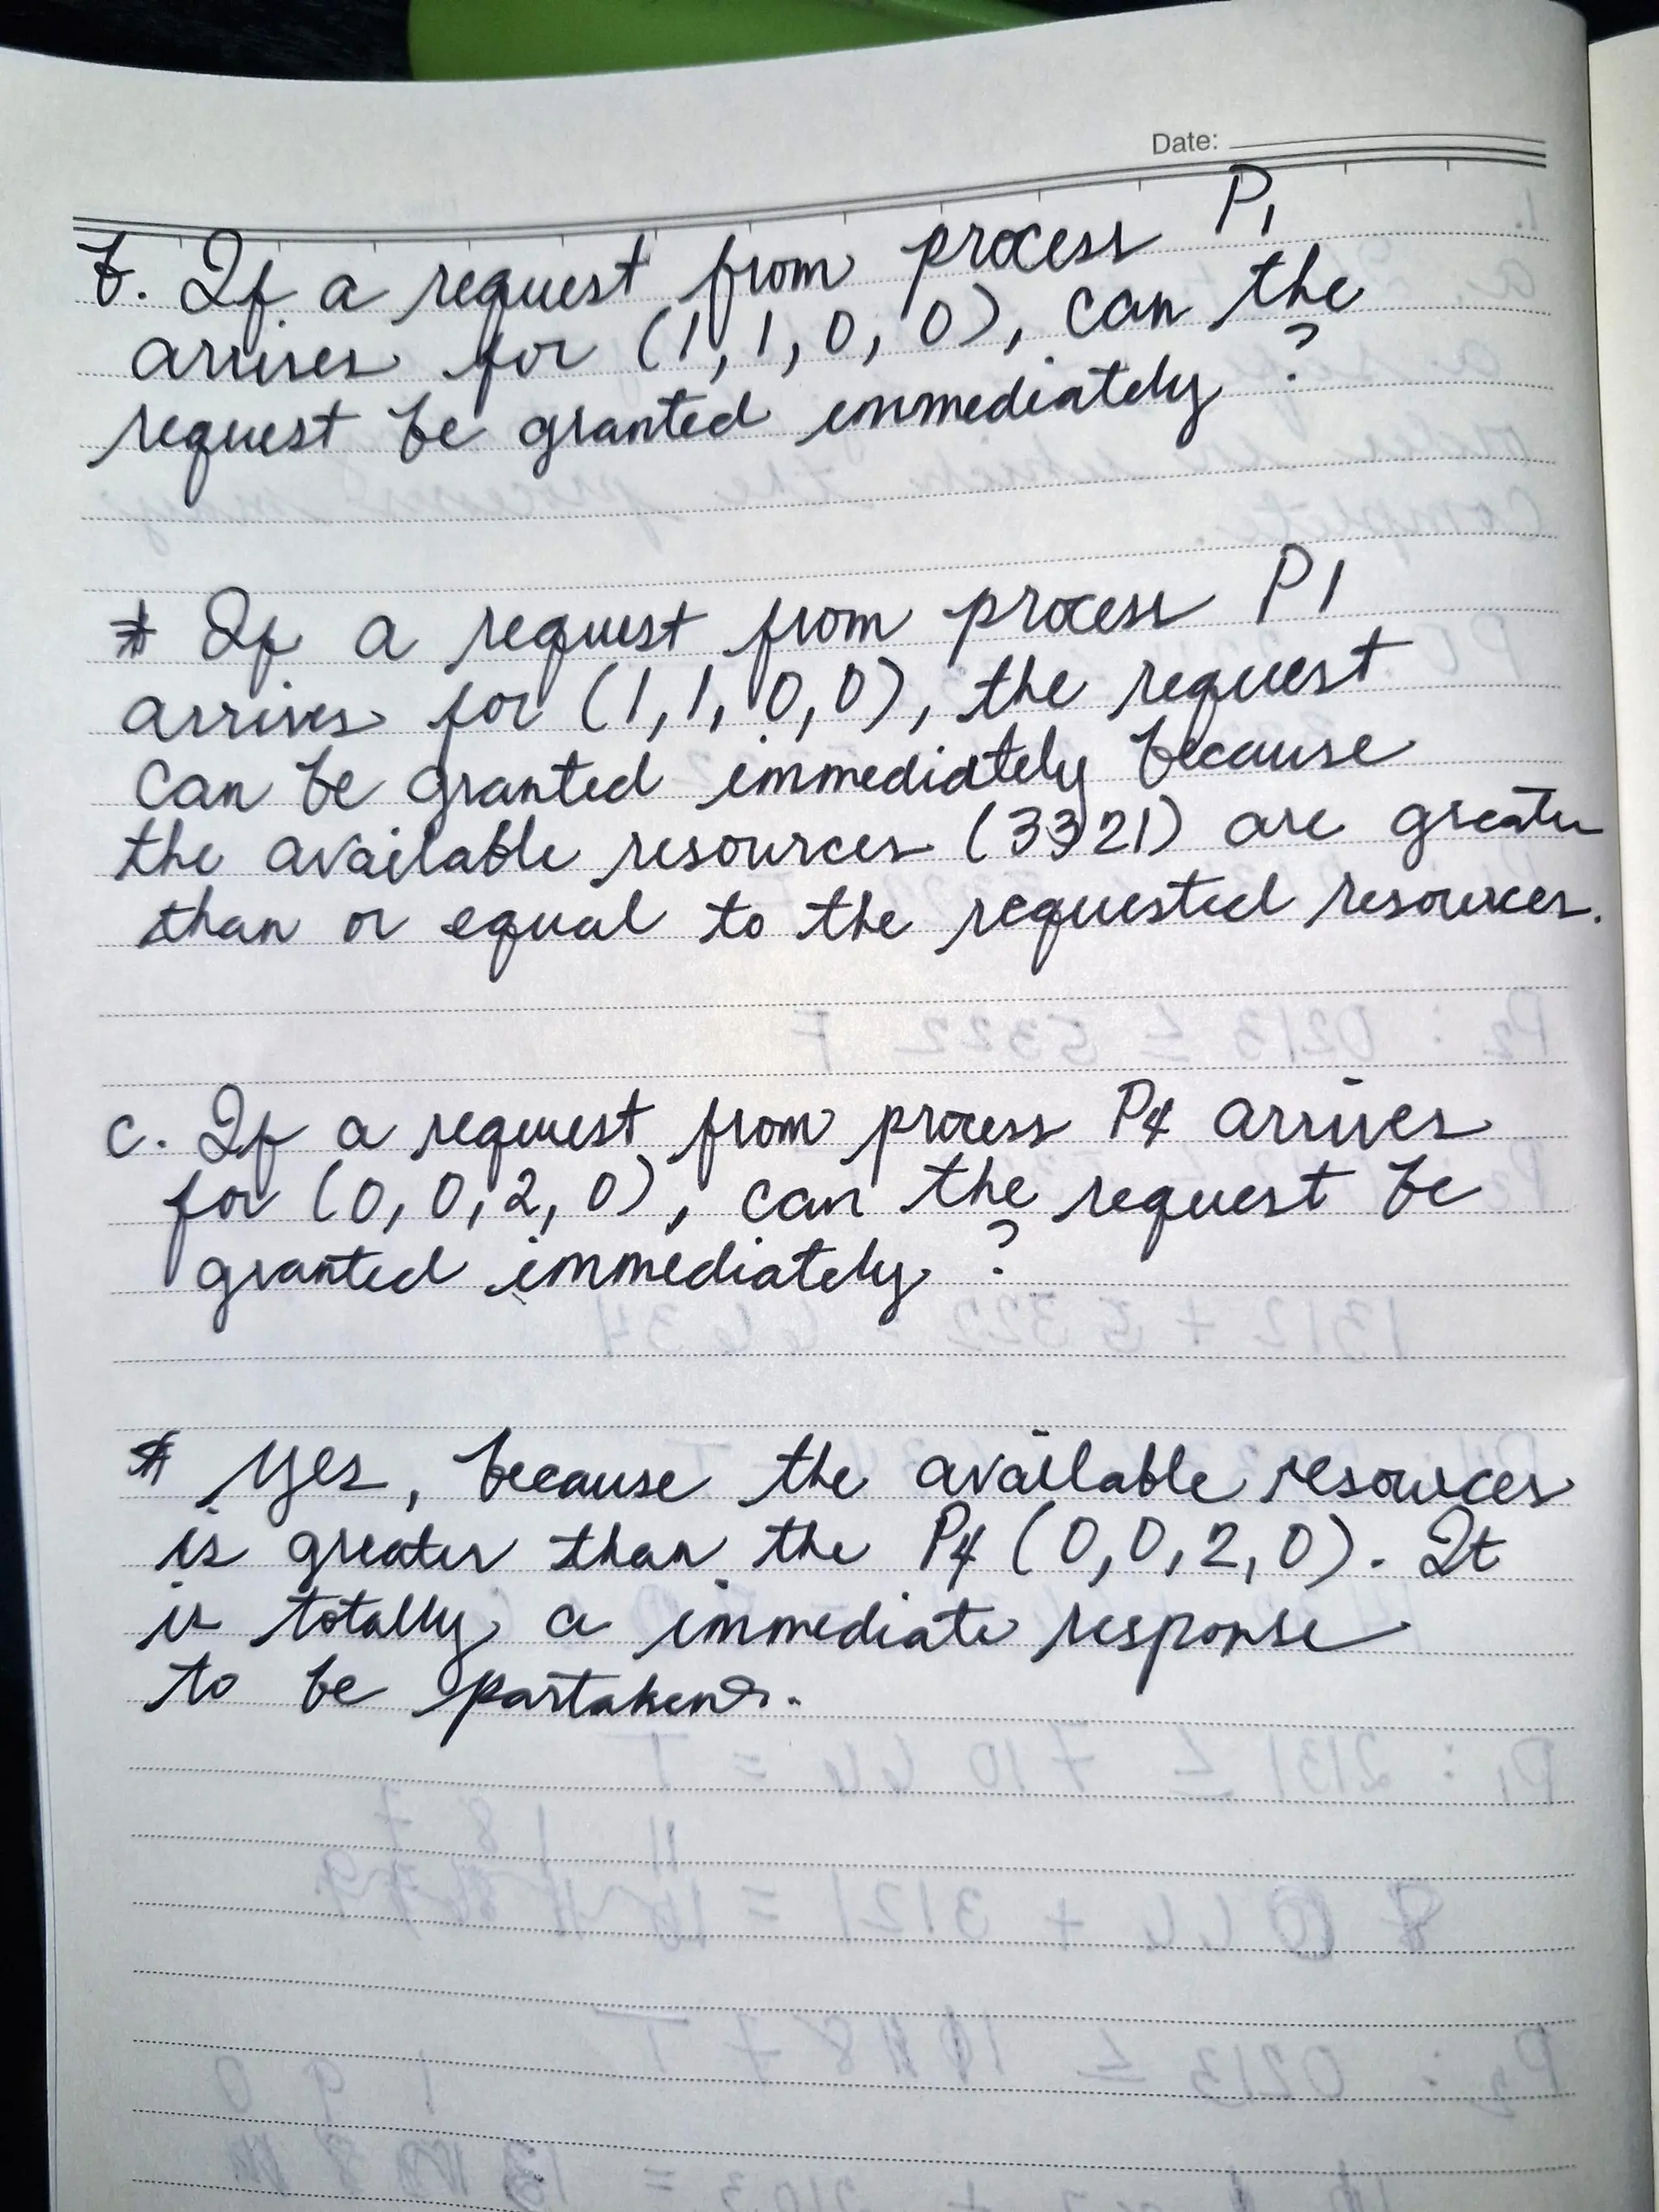 Date:
b. If a request from process P1
arrives for (1, 1, 0, 0), can the
request be granted immediately?
* If a request from process P1
arrives for (1, 1, 0, 0), the request
can be granted immediately because
the available resources (3321) are greater
than or equal to the requested resources.
c. If a request from process P4 arrives
for (0, 0, 2, 0), can the request be
granted immediately?
* Yes, because the available resources
is greater than the P4 (0, 0, 2, 0). It
is totally a immediate response
to be partaken.